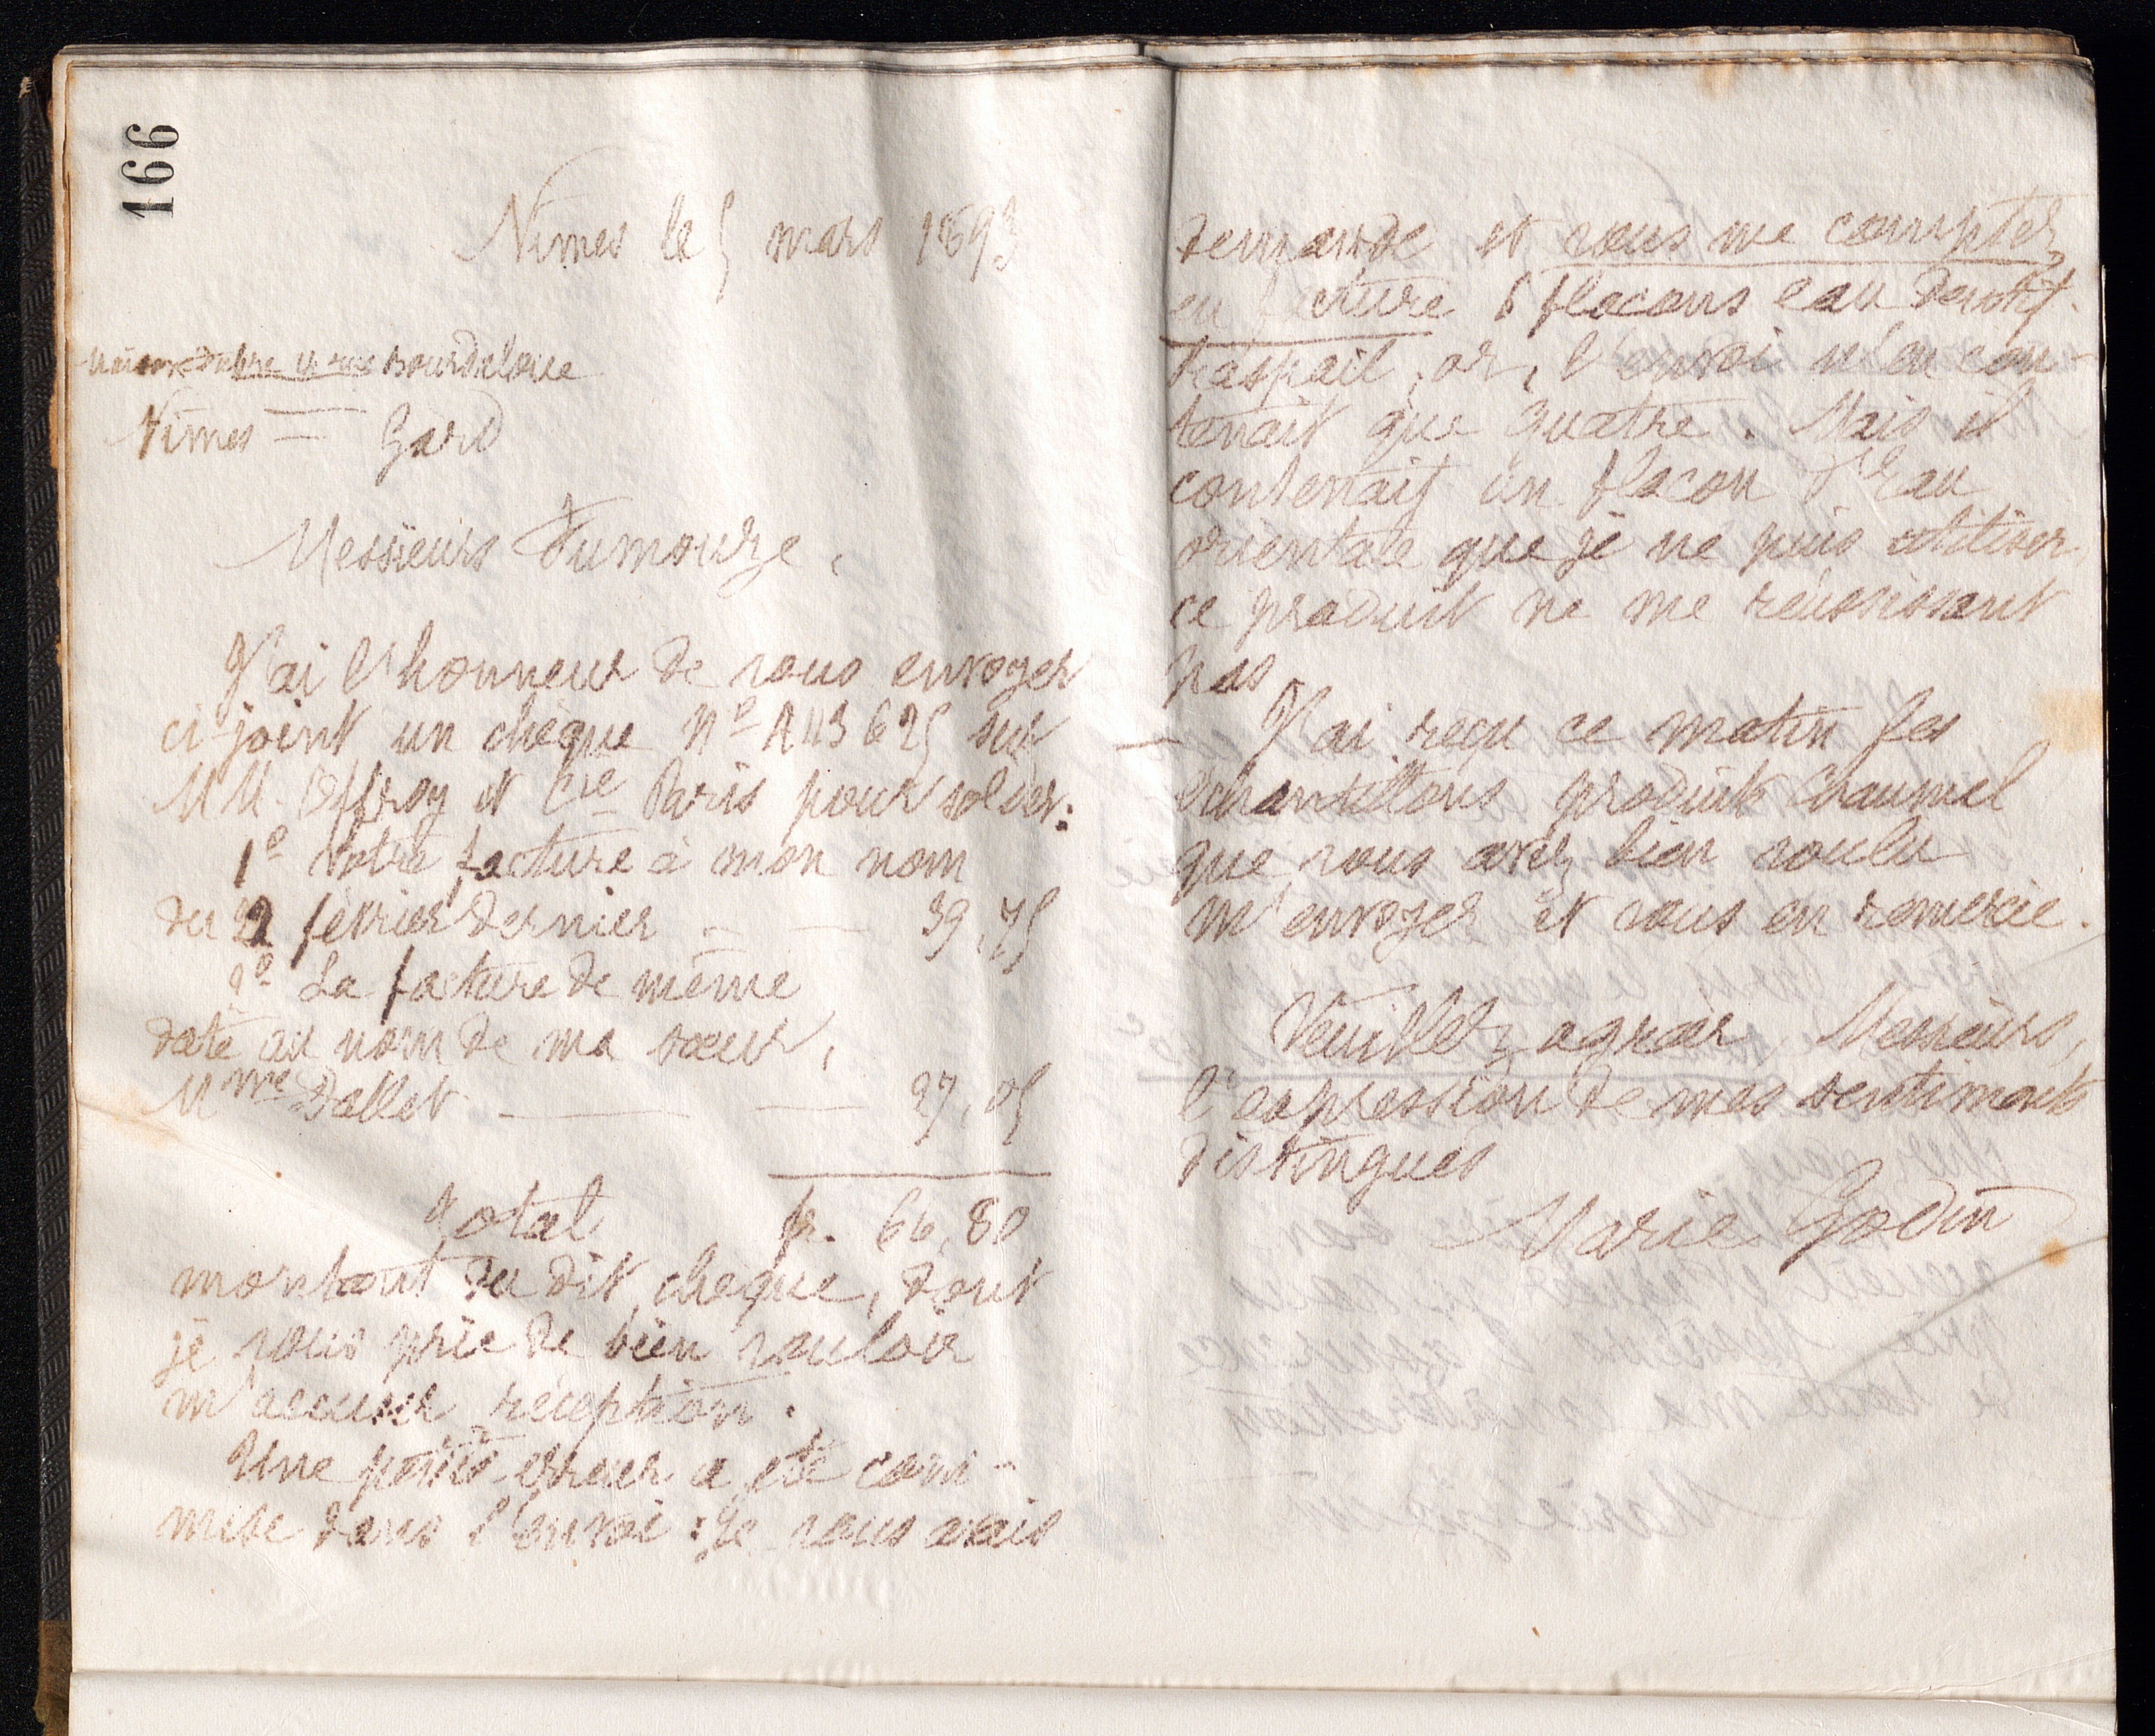 166
Nîmes le 5 mars 1893
maison Fabre 11 rue Bourdaloue
Nîmes = Gard
Messieurs Fumouze,
J'ai l'honneur de vous envoyer
ci-joint un chèque Nº A 43 625 sur
MM. Offroy et Cie Paris pour solder:
1º Votre facture à mon nom
du 22 février dernier — — 39,75
2º La facture de même
date au nom de ma sœur,
Mme Dallet — — 27,05
Total fr. 66,80
montant du dit chèque, dont
je vous prie de bien vouloir
m'accuser réception.
Une petite erreur a été com-
mise dans l'envoi : Je vous avais
demandé et vous me comptez
en facture 6 flacons eau dentif.
Raspail, or, l'envoi n'en con-
tenait que quatre. Mais il
contenait un flacon d'Eau
orientale que je ne puis utiliser
ce produit ne me réussissant
pas.
— J'ai reçu ce matin les
échantillons produits Chaumel
que vous avez bien voulu
m'envoyer et vous en remercie.
Veuillez agréer, Messieurs,
l'expression de mes sentiments
distingués
Marie Godin